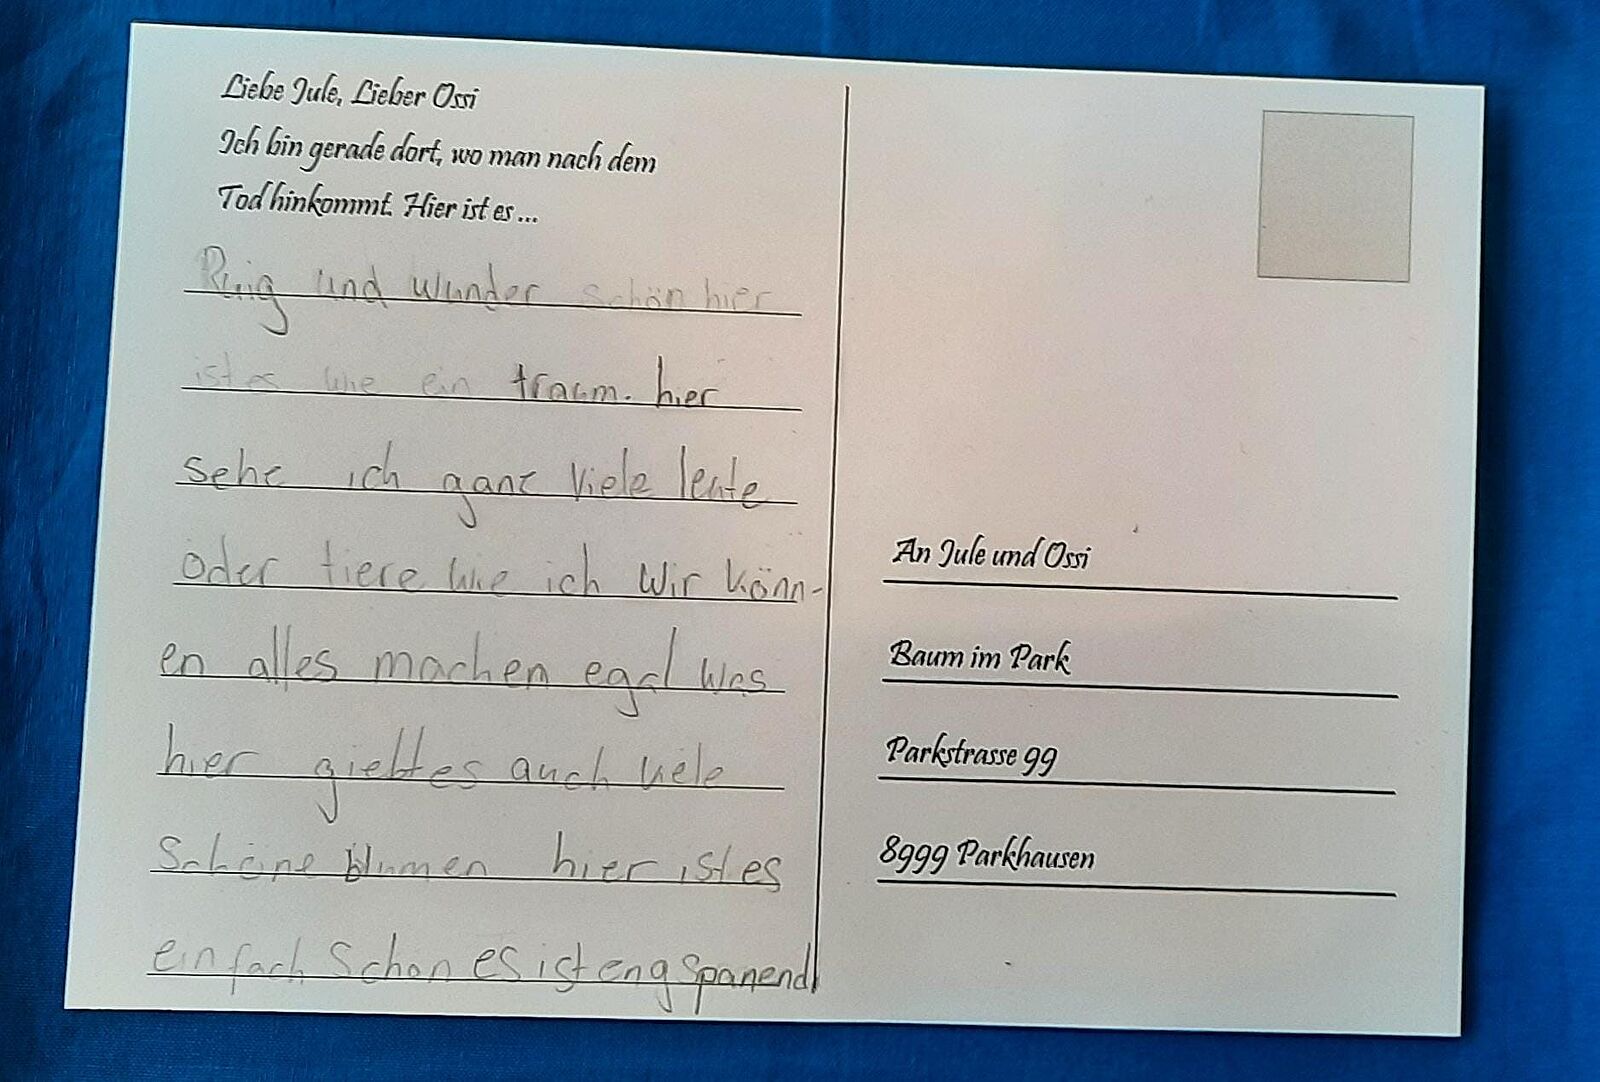 Liebe Jule, Lieber Ossi
Ich bin gerade dort, wo man nach dem
Tod hinkommt. Hier ist es ...
Ruig und wunder schön hier
ist es wie ein traum. hier
sehe ich ganz viele leute
oder tiere wie ich wir könn-
en alles machen egal was
hier giebt es auch viele
Schöne blumen hier ist es
einfach Schön es ist engspanend
An Jule und Ossi
Baum im Park
Parkstrasse 99
8999 Parkhausen